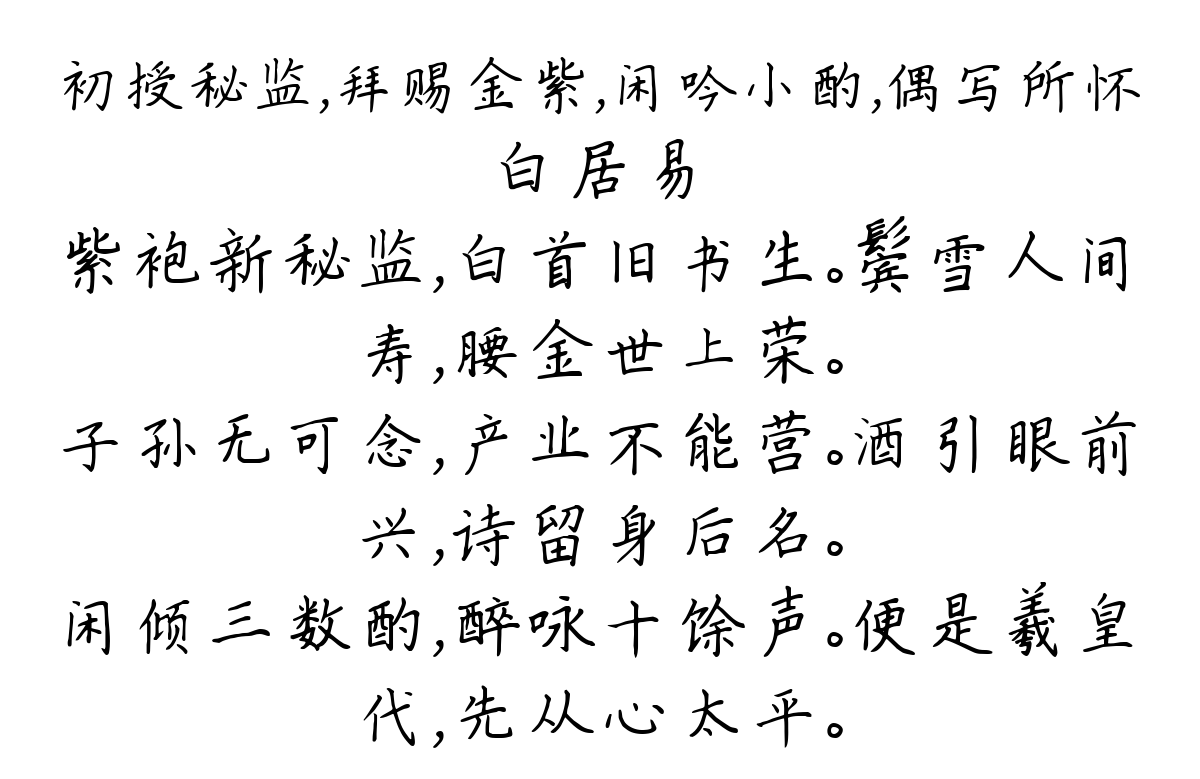 初授秘监,拜赐金紫,闲吟小酌,偶写所怀
白居易
紫袍新秘监,白首旧书生。鬓雪人间
寿,腰金世上荣。
子孙无可念,产业不能营。酒引眼前
兴,诗留身后名。
闲倾三数酌,醉咏十馀声。便是羲皇
代,先从心太平。